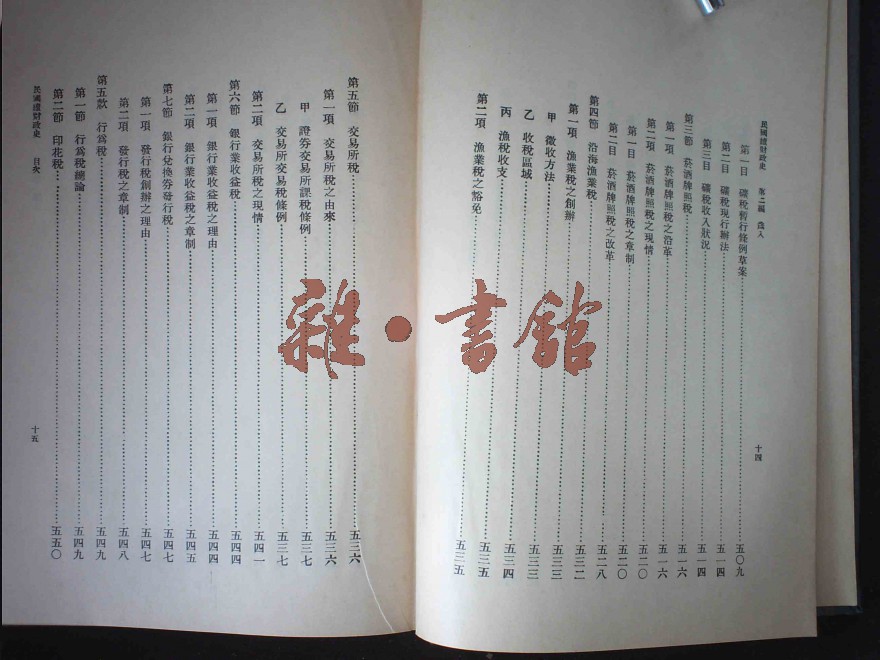 民國續財政史 第二編 歲入
第一目 礦稅暫行條例草案………五〇九
第二目 礦稅現行辦法………五一四
第三目 礦稅收入狀況………五一四
第三節 菸酒牌照稅………五一六
第一項 菸酒牌照稅之沿革………五一六
第二項 菸酒牌照稅之現情………五二〇
第一目 菸酒牌照稅之章制………五二〇
第二目 菸酒牌照稅之改革………五二八
第四節 沿海漁業稅………五三二
第一項 漁業稅之創辦………五三三
甲 徵收方法………五三三
乙 收稅區域………五三四
丙 漁稅收支………五三五
第二項 漁業稅之豁免………五三五
十四
第五節 交易所稅………五三六
第一項 交易所稅之由來………五三六
甲 證券交易所課稅條例………五三七
乙 交易所交易稅條例………五三七
第二項 交易所稅之現情………五四一
第六節 銀行業收益稅………五四四
第一項 銀行業收益稅之理由………五四四
第二項 銀行業收益稅之章制………五四五
第七節 銀行兌換券發行稅………五四七
第一項 發行稅創辦之理由………五四七
第二項 發行稅之章制………五四八
第五款 行為稅………五四九
第一節 行為稅總論………五四九
第二節 印花稅………五五〇
民國續財政史 目次
十五
雜·書館